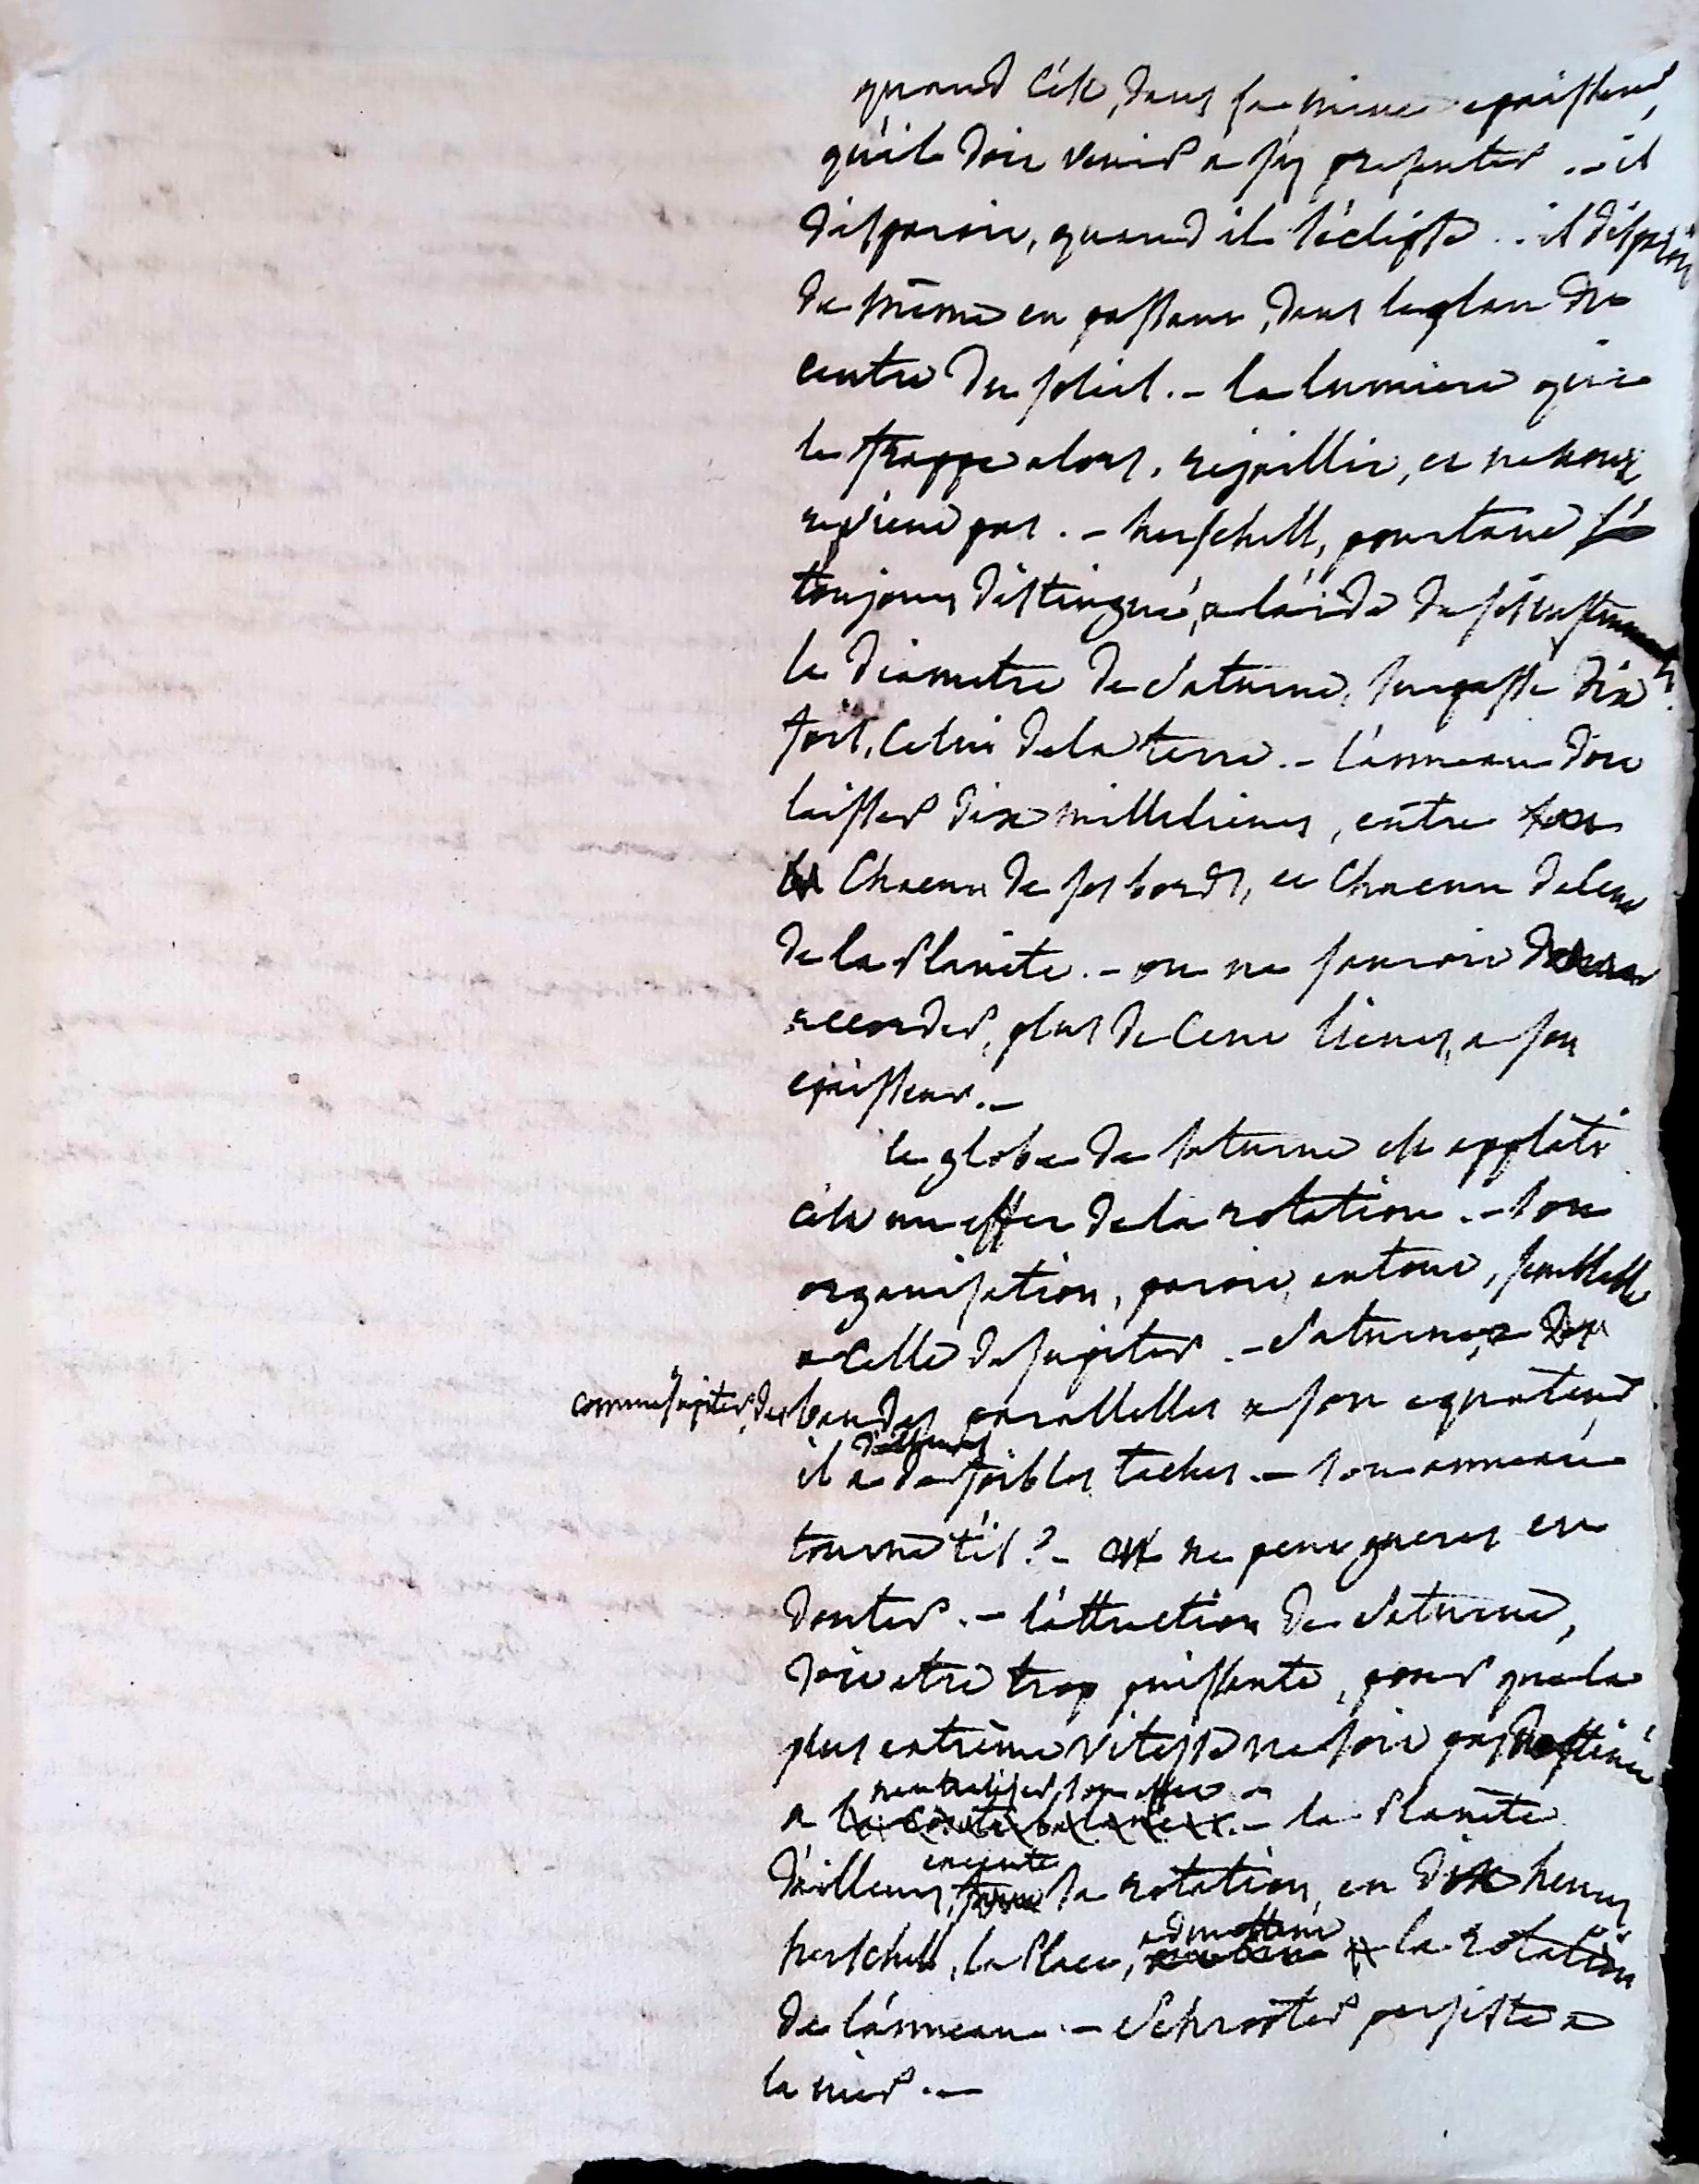 quand c'est, dans sa mince epaisseur,
qu'il doit venir a s'y presenter .- il
disparoit, quand il s'éclipse .- il disparoit
de même en passant, dans le plan du
centre du soleil .- la lumiere qui
le frappe alors, rejaillit, et ne nous
revient pas .- herschell, pourtant l'a
toujours distingué, a l'aide de ses instruments
le diametre de Saturne, surpasse dix
fois, celui de la terre .- l'anneau doit
laisser dix mille lieues, entre
chacun de ses bords, et chacun de ceux
de la Planete .- on ne sauroit
accorder, plus de cent lieues, a son
epaisseur .-
le globe de saturne est applati
c'est un effet de la rotation .- son
organisation, paroit, en tout, semblable
a celle de Jupiter .- Saturne, a
comme Jupiter, des bandes parallelles a son equateur
il a de foibles taches .- son anneau
tourne t'il ? - on ne peut gueres en
douter .- l'attraction de Saturne,
doit etre trop puissante, pour que la
plus extrême vitesse ne soit pas destinée
neutraliser son effet -
a la contrebalancer .- la Planete
execute
d'ailleurs, sa rotation, en dix heures
admettent
herschell, la Place, la rotation
de l'anneau .- Schroëter persiste a
la nier .-